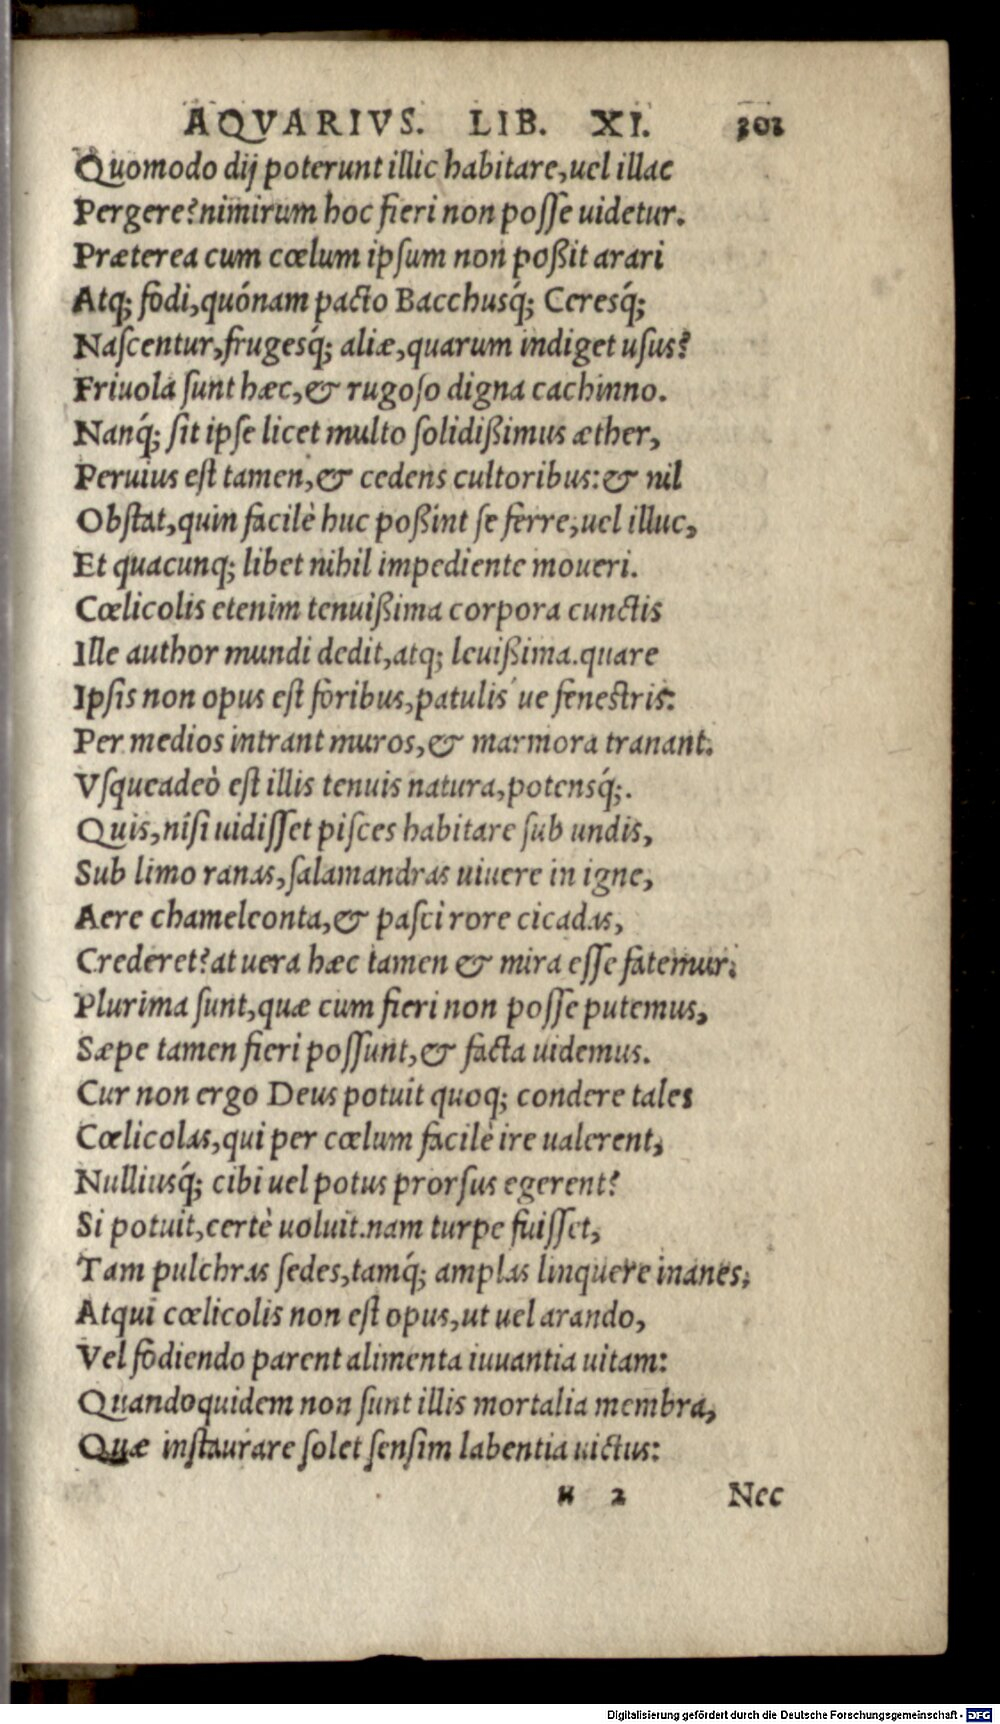 AQVARIVS. LIB. XI. 303
Quomodo dij poterunt illic habitare, uel illac
Pergere? nimirum hoc fieri non posse uidetur.
Præterea cum cœlum ipsum non poßit arari
Atq; fodi, quónam pacto Bacchusq́; Ceresq́;
Nascentur, frugesq́; aliæ, quarum indiget usus?
Friuola sunt hæc, & rugoso digna cachinno.
Nanq́; sit ipse licet multo solidißimus æther,
Peruius est tamen, & cedens cultoribus: & nil
Obstat, quin facilè huc poßint se ferre, uel illuc,
Et quacunq; libet nihil impediente moueri.
Cœlicolis etenim tenuißima corpora cunctis
Ille author mundi dedit, atq; leuißima. quare
Ipsis non opus est foribus, patulis ue fenestris:
Per medios intrant muros, & marmora tranant.
Vsqueadeò est illis tenuis natura, potensq́;.
Quis, nisi uidisset pisces habitare sub undis,
Sub limo ranas, salamandras uiuere in igne,
Aere chameleonta, & pasci rore cicadas,
Crederet? at uera hæc tamen & mira esse fatemur.
Plurima sunt, quæ cum fieri non posse putemus,
Sæpe tamen fieri possunt, & facta uidemus.
Cur non ergo Deus potuit quoq; condere tales
Cœlicolas, qui per cœlum facilè ire ualerent,
Nulliusq́; cibi uel potus prorsus egerent?
Si potuit, certè uoluit. nam turpe fuisset,
Tam pulchras sedes, tamq́; amplas linquere inanes,
Atqui cœlicolis non est opus, ut uel arando,
Vel fodiendo parent alimenta iuuantia uitam:
Quandoquidem non sunt illis mortalia membra,
Quæ instaurare solet sensim labentia uictus:
u 2 Nec
Digitalisierung gefördert durch die Deutsche Forschungsgemeinschaft - DFG